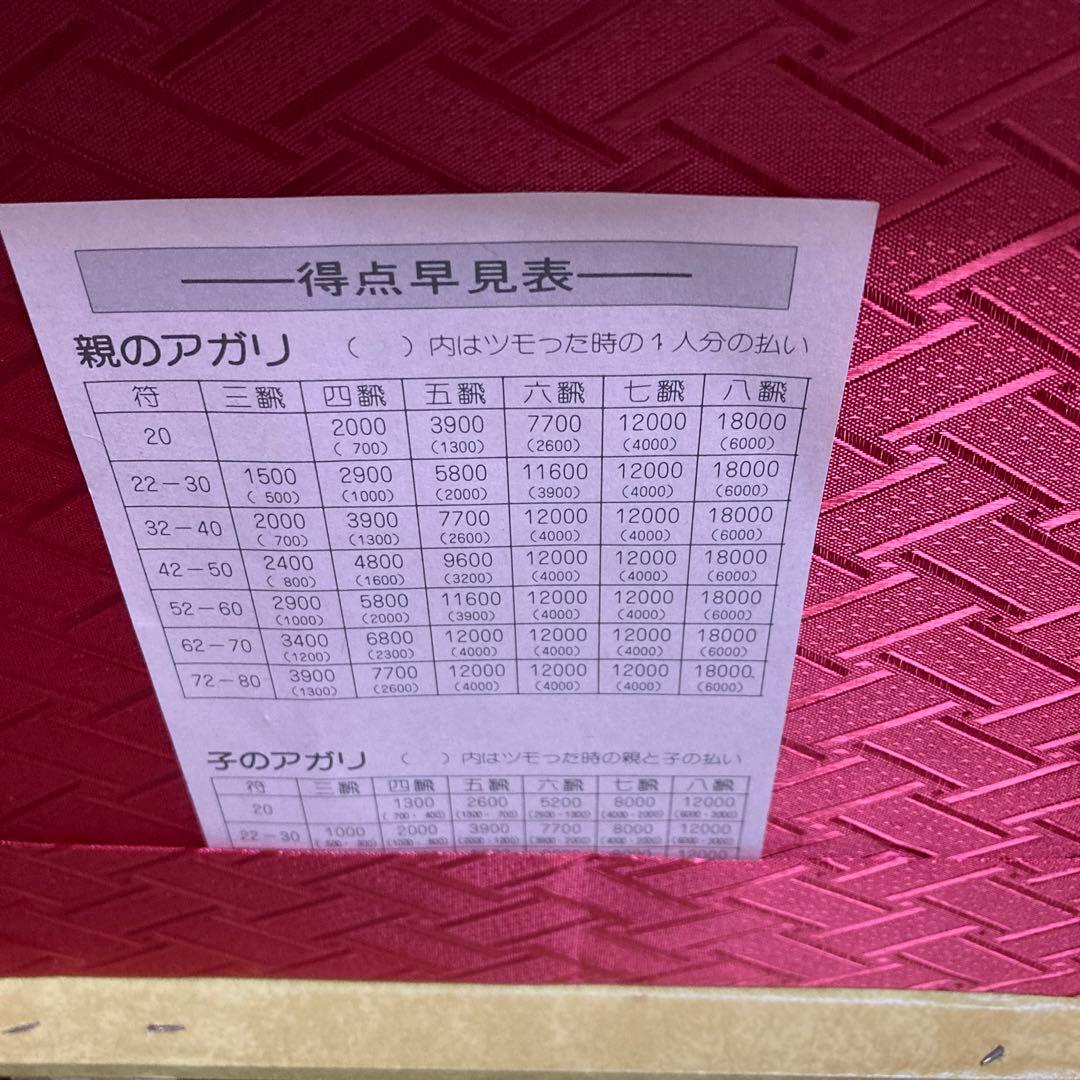 得点早見表
親のアガリ ( ) 内はツモった時の1人分の払い
符 三飜 四飜 五飜 六飜 七飜 八飜
20 2000 3900 7700 12000 18000
( 700) (1300) (2600) (4000) (6000)
22-30 1500 2900 5800 11600 12000 18000
( 500) (1000) (2000) (3900) (4000) (6000)
32-40 2000 3900 7700 12000 12000 18000
( 700) (1300) (2600) (4000) (4000) (6000)
42-50 2400 4800 9600 12000 12000 18000
( 800) (1600) (3200) (4000) (4000) (6000)
52-60 2900 5800 11600 12000 12000 18000
(1000) (2000) (3900) (4000) (4000) (6000)
62-70 3400 6800 12000 12000 12000 18000
(1200) (2300) (4000) (4000) (4000) (6000)
72-80 3900 7700 12000 12000 12000 18000
(1300) (2600) (4000) (4000) (4000) (6000)
子のアガリ ( ) 内はツモった時の親と子の払い
符 三飜 四飜 五飜 六飜 七飜 八飜
20 1300 2600 5200 8000 12000
( 700・ 400) (1300・ 700) (2600・1300) (4000・2000) (6000・3000)
22-30 1000 2000 3900 7700 8000 12000